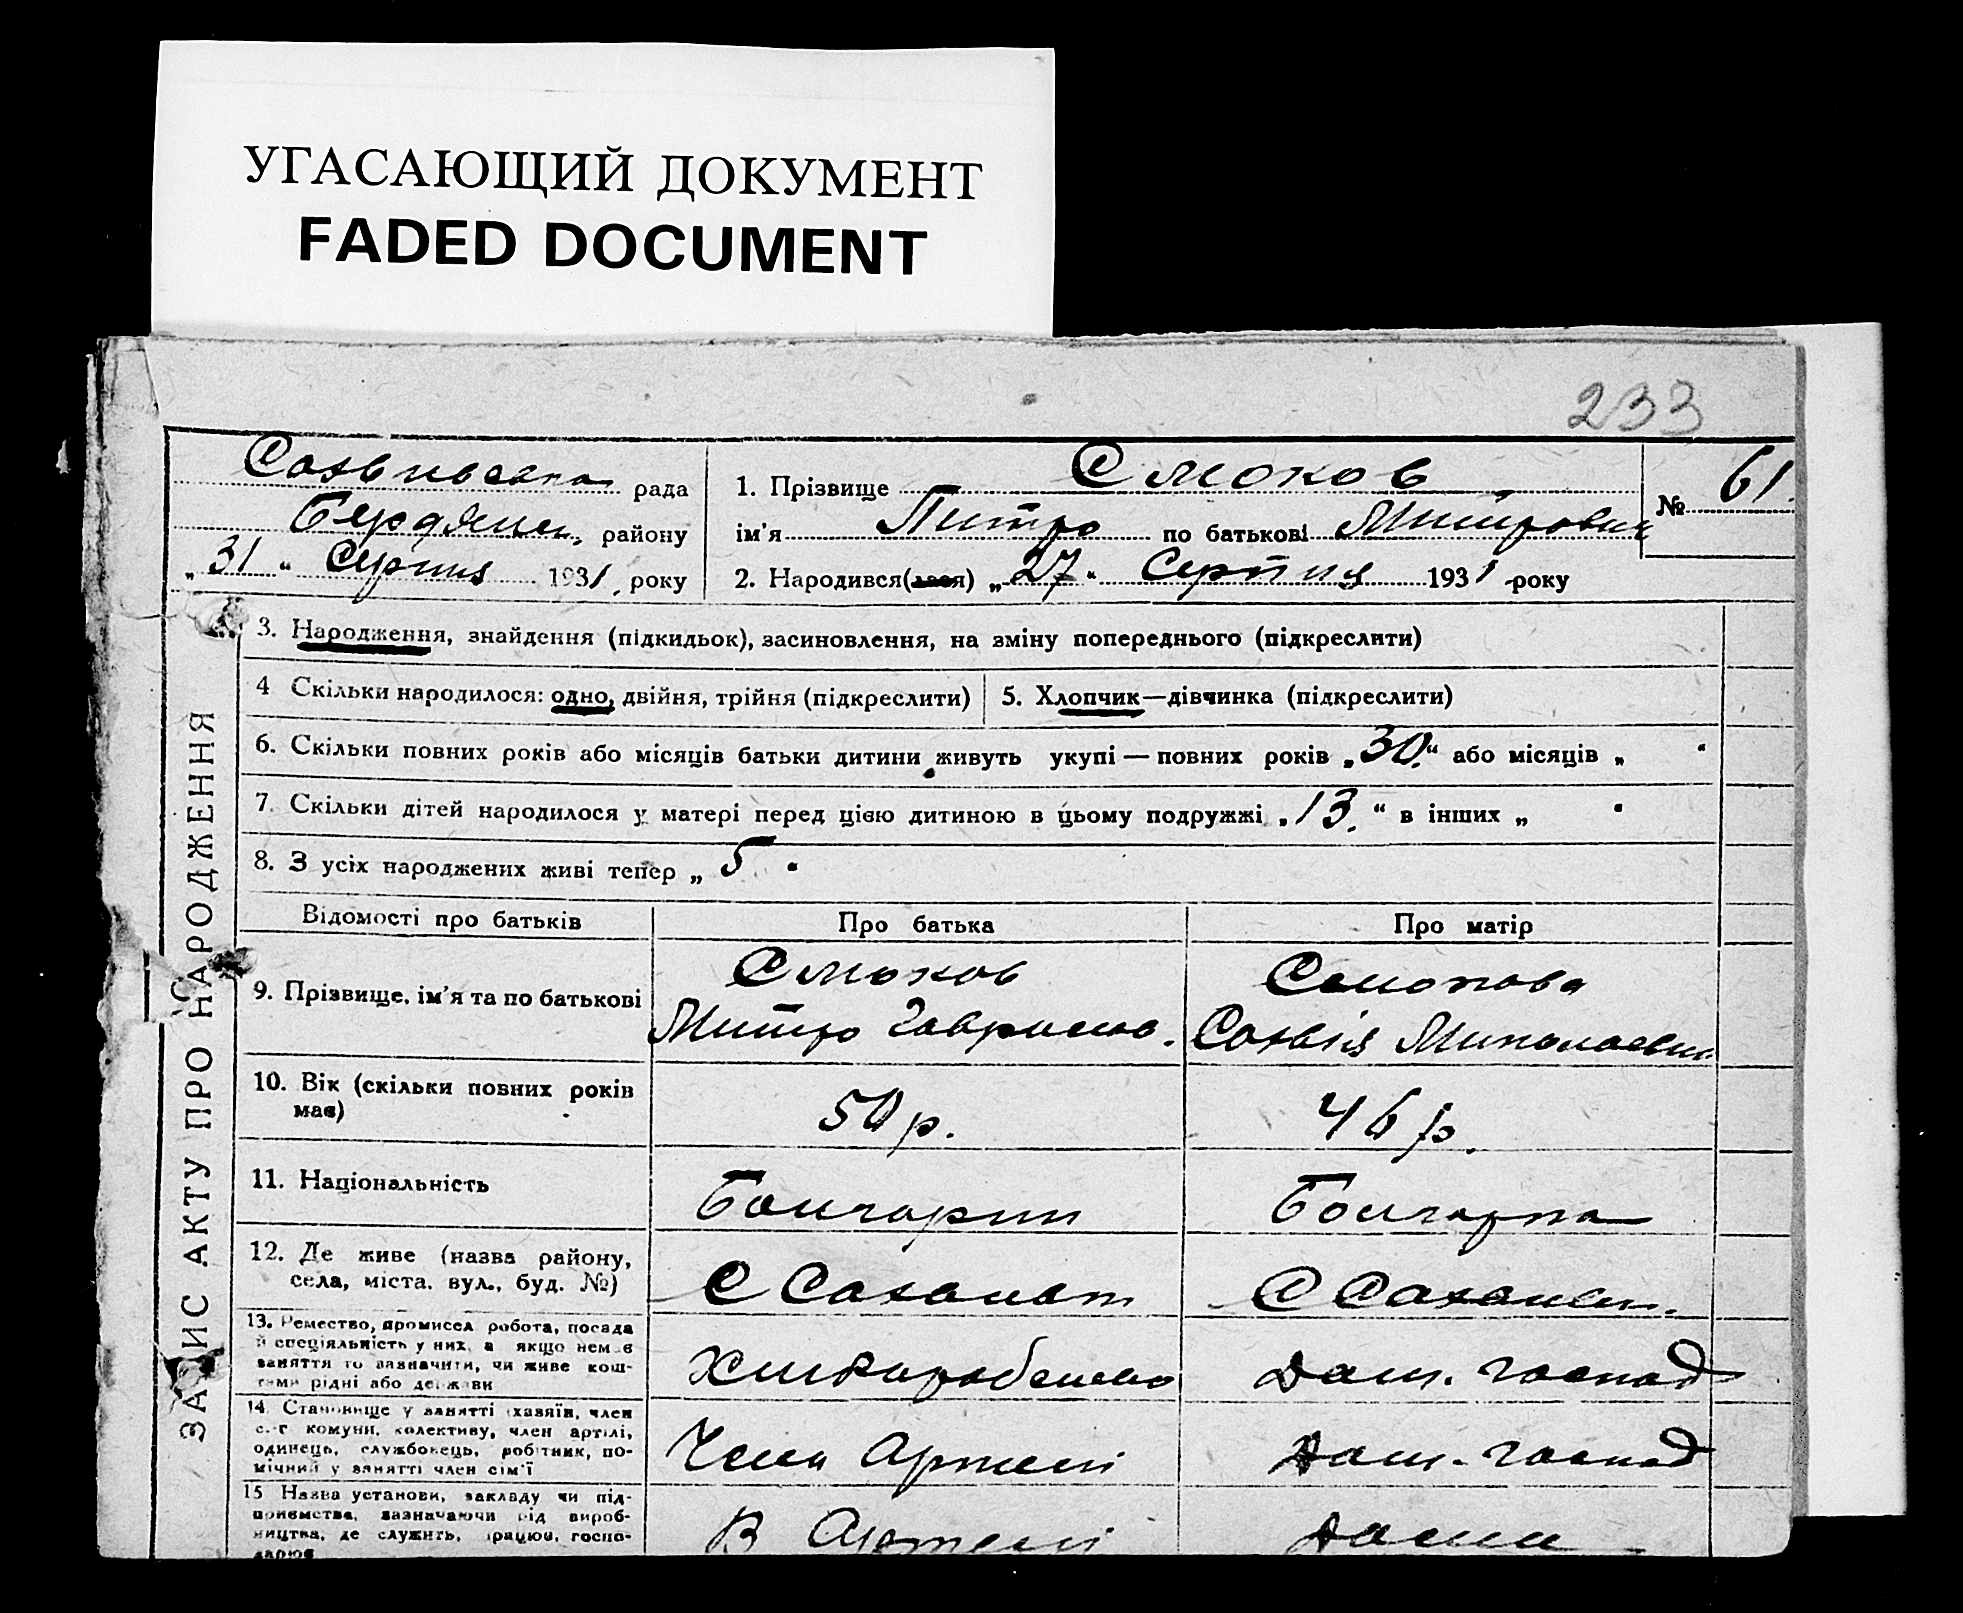 УГАСАЮЩИЙ ДОКУМЕНТ
FADED DOCUMENT
233
рада
Бердянськ. району
„31“ Серпня 1931 року
1. Прізвище Смоков
ім'я Питро по батькові Митрович
2. Народився(лася) „27“ Серпня 1931 року
№ 61.
ЗАПИС АКТУ ПРО НАРОДЖЕННЯ
3. Народження, знайдення (підкидьок), засиновлення, на зміну попереднього (підкреслити)
4 Скільки народилося: одно, двійня, трійня (підкреслити)
5. Хлопчик—дівчинка (підкреслити)
6. Скільки повних років або місяців батьки дитини живуть укупі — повних років „30.“ або місяців „ “
7. Скільки дітей народилося у матері перед цією дитиною в цьому подружжі „13.“ в інших „ “
8. З усіх народжених живі тепер „5“
Відомості про батьків
Про батька
Про матір
9. Прізвище, ім'я та по батькові
Смоков
Митро Гаврилов.
Смокова
Софія Миколаевна
10. Вік (скільки повних років
має)
50 р.
46 р.
11. Національність
Болгарин
Болгарка
12. Де живе (назва району,
села, міста, вул., буд. №)
С
С
13. Ремество, промисел робота, посада
й спеціяльність у них, а якщо нема
заняття то зазначити, чи живе кош-
тами рідні або держави
Хлибороб
Дом. господ
14. Становище у занятті (хазяїн, член
с.-г комуни, колективу, член артілі,
одинець, службовець, робітник, по-
мічний у занятті член сім'ї
Член Артелі
Дом. господ
15 Назва установи, закладу чи під-
приємства, зазначаючи рід вироб-
ництва, де служить, працює, госпо-
дарює
В Артелі
Дома